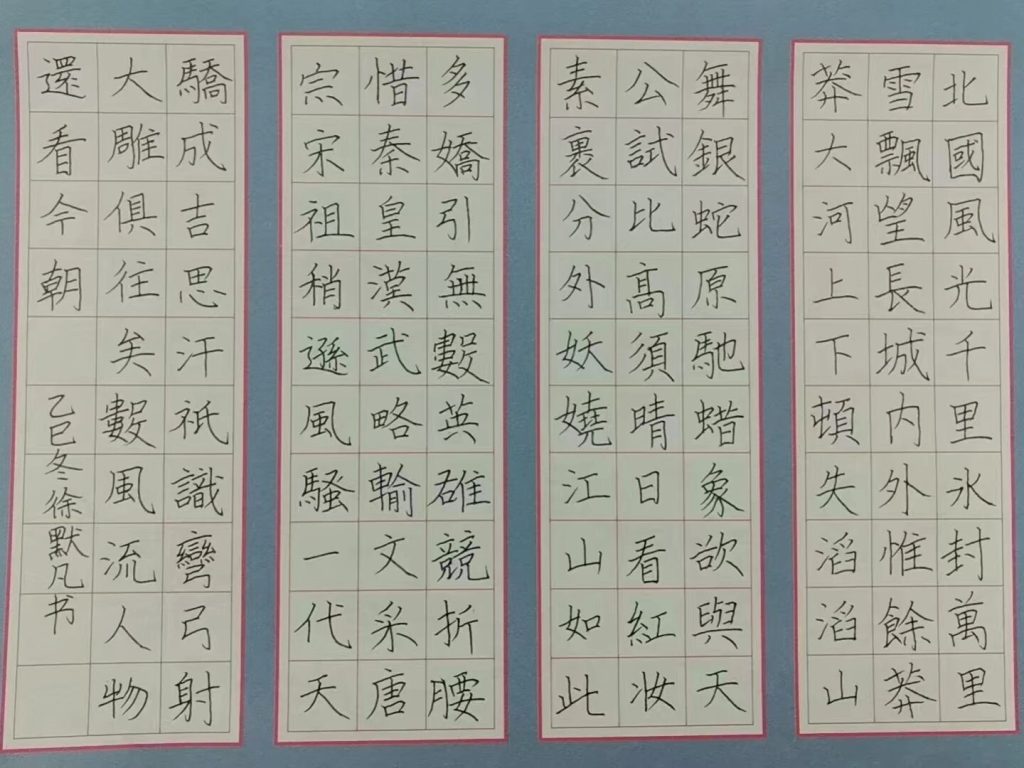 北國風光千里氷封萬里
雪飄望長城内外惟餘莽
莽大河上下頓失滔滔山
舞銀蛇原馳蜡象欲與天
公試比髙須晴日看紅妆
素裹分外妖嬈江山如此
多嬌引無數英雄競折腰
惜秦皇漢武略輸文采唐
宗宋祖稍遜風騷一代天
驕成吉思汗祇識彎弓射
大雕俱往矣數風流人物
還看今朝
乙巳冬徐默凡书